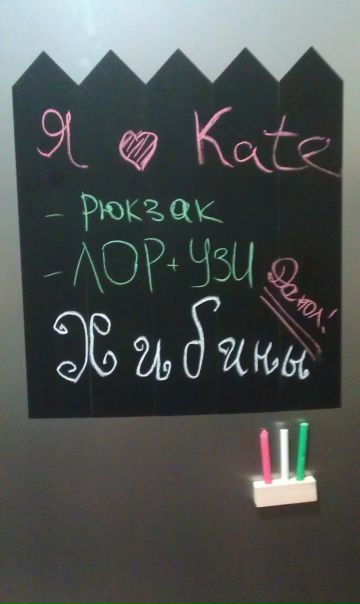 Я ♥ Kate
- РЮКЗАК
- ЛОР + УЗИ
Хибины